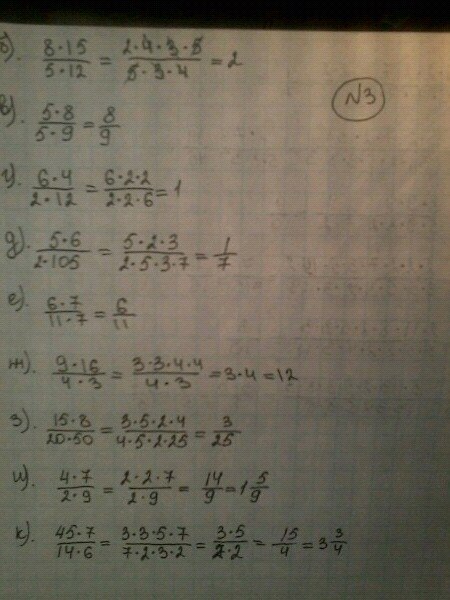 б). 8·15/5·12 = 2·4·3·5/5·3·4 = 2
№3
в). 5·8/5·9 = 8/9
г). 6·4/2·12 = 6·2·2/2·2·6 = 1
д). 5·6/2·105 = 5·2·3/2·5·3·7 = 1/7
е). 6·7/11·7 = 6/11
ж). 9·16/4·3 = 3·3·4·4/4·3 = 3·4 = 12
з). 15·8/20·50 = 3·5·2·4/4·5·2·25 = 3/25
и). 4·7/2·9 = 2·2·7/2·9 = 14/9 = 1 5/9
к). 45·7/14·6 = 3·3·5·7/7·2·3·2 = 3·5/2·2 = 15/4 = 3 3/4